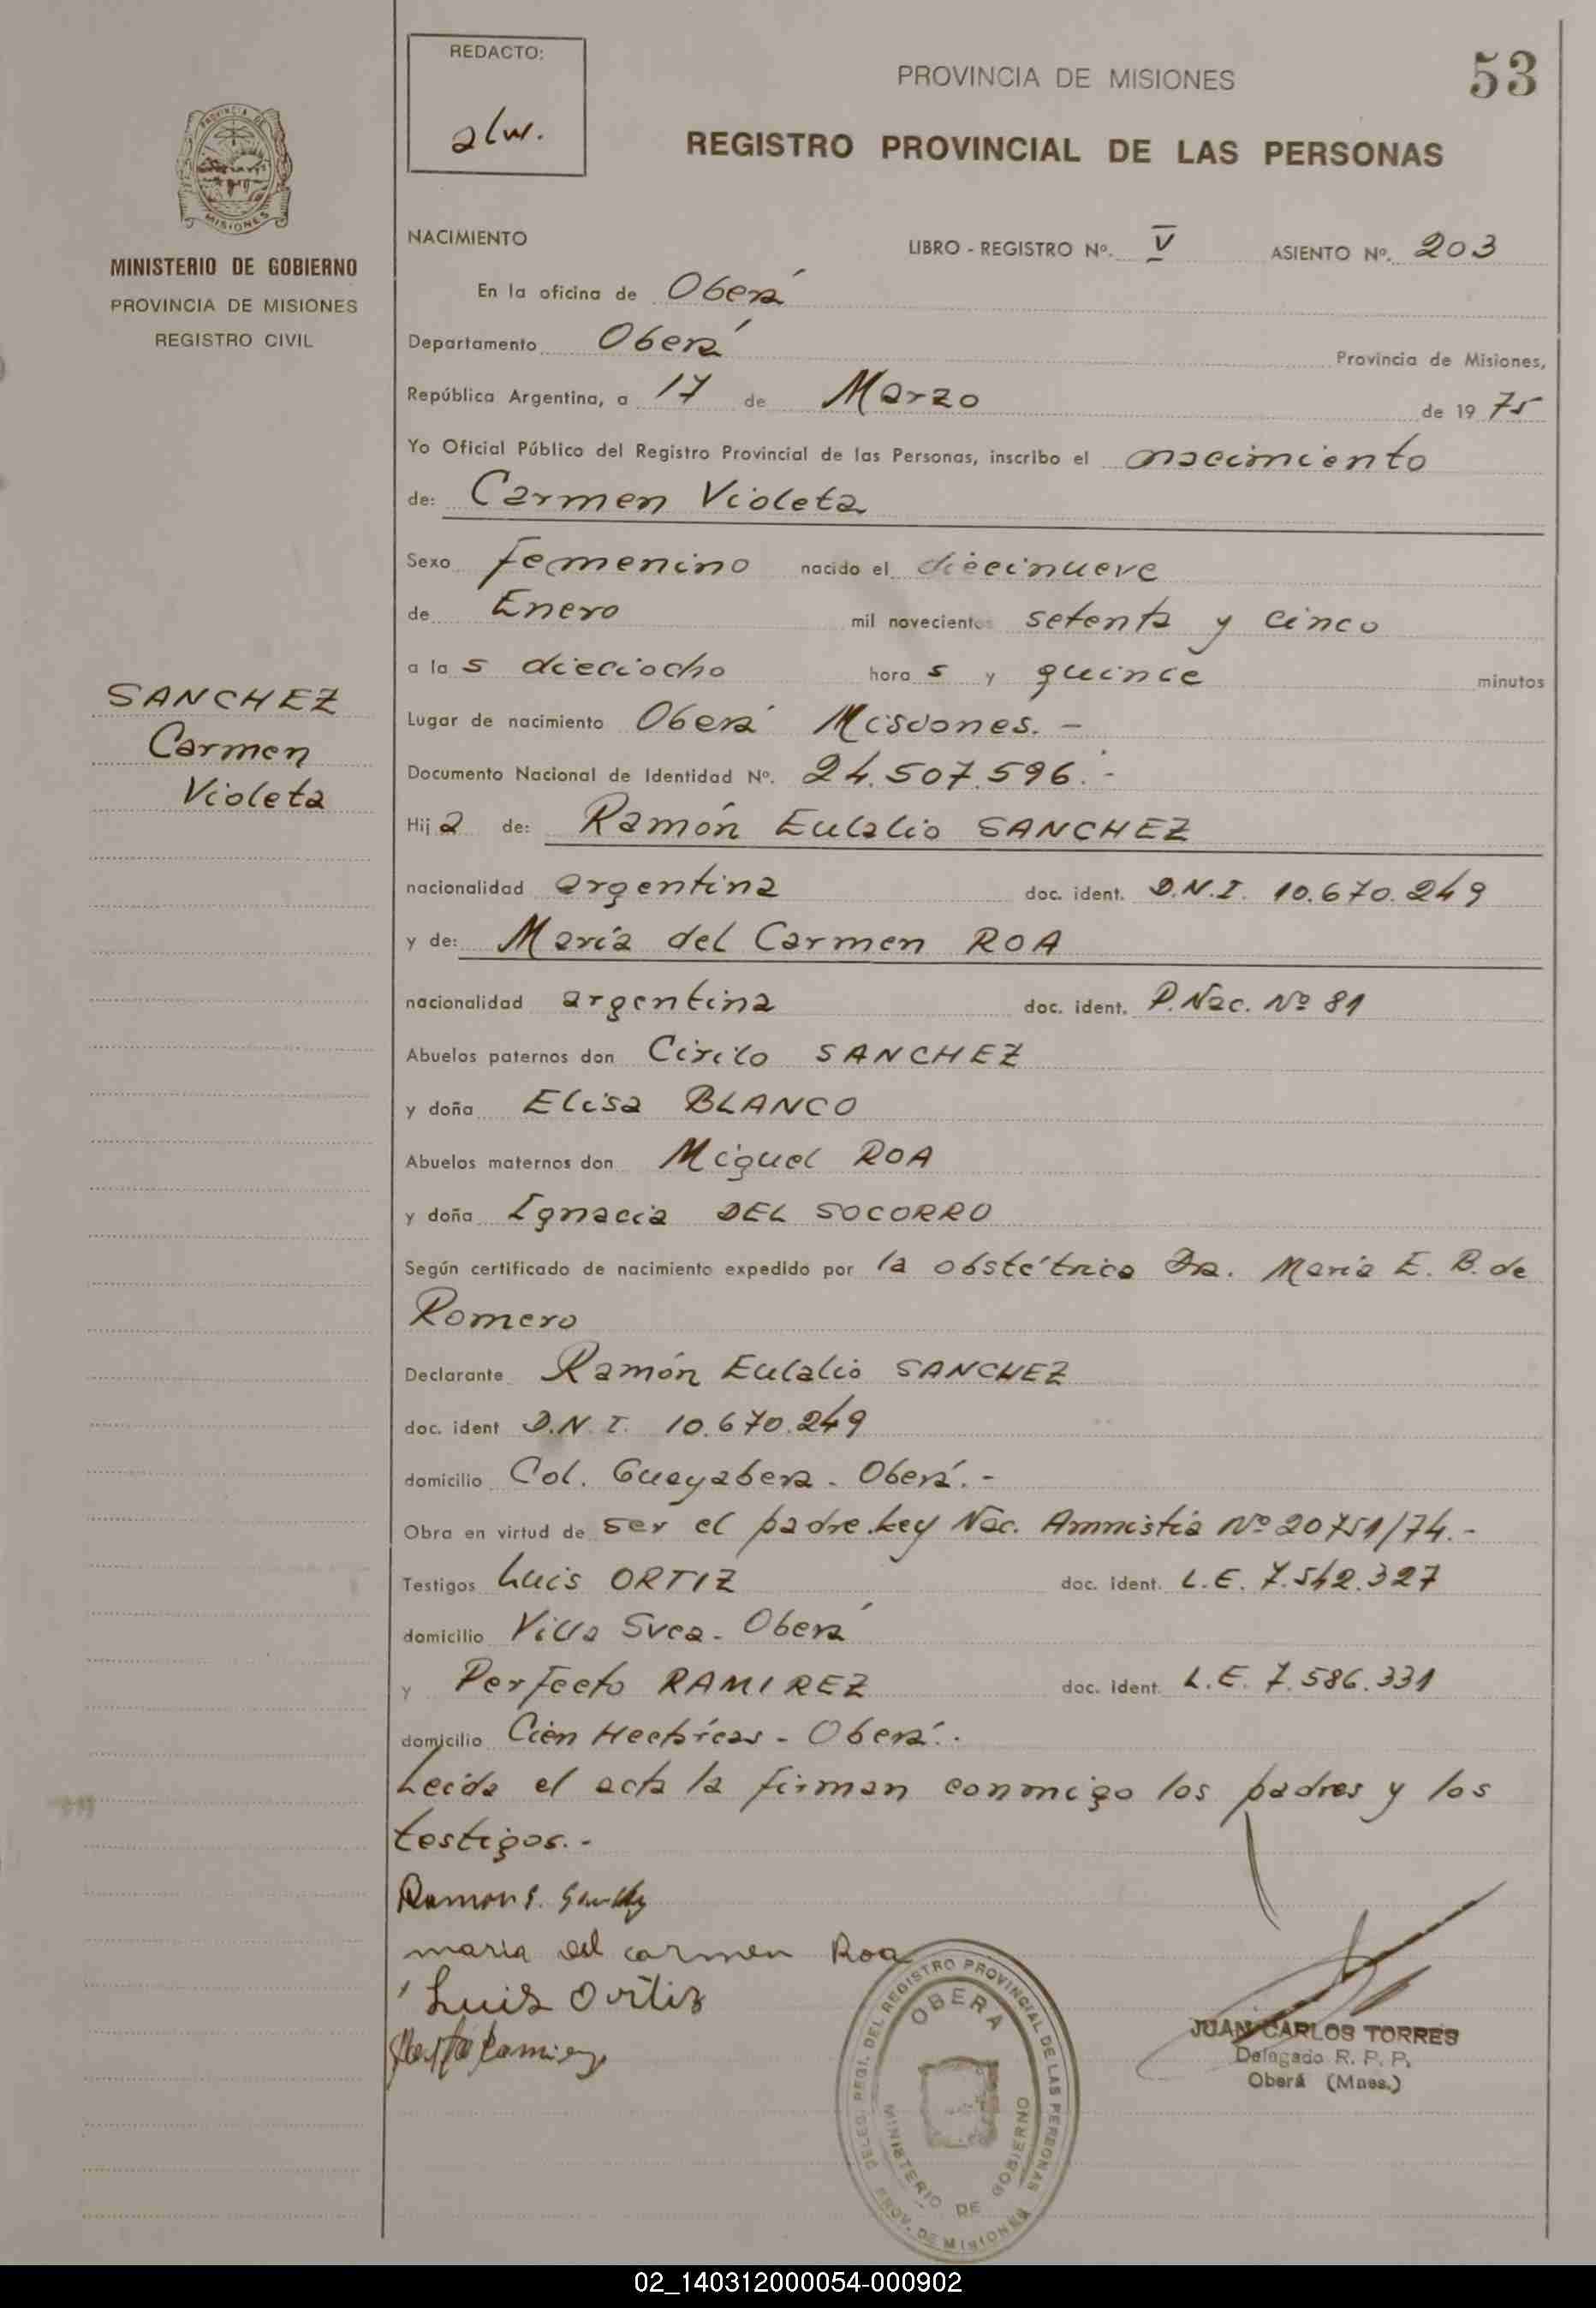 REDACTO:
alw.
PROVINCIA DE MISIONES
53
REGISTRO PROVINCIAL DE LAS PERSONAS
PROVINCIA DE
MISIONES
MINISTERIO DE GOBIERNO
PROVINCIA DE MISIONES
REGISTRO CIVIL
NACIMIENTO LIBRO - REGISTRO Nº. V ASIENTO Nº. 203
En la oficina de Oberá
Departamento Oberá Provincia de Misiones,
República Argentina, a 17 de Marzo de 19 75
Yo Oficial Público del Registro Provincial de las Personas, inscribo el nacimiento
de: Carmen Violeta
Sexo femenino nacido el diecinueve
de Enero mil novecientos setenta y cinco
a la s dieciocho hora s y quince minutos
SANCHEZ
Carmen
Violeta
Lugar de nacimiento Oberá Misiones. -
Documento Nacional de Identidad Nº. 24.507.596. -
Hij a de: Ramón Eulalio SANCHEZ
nacionalidad argentina doc. ident. D.N.I. 10.670.249
y de: María del Carmen ROA
nacionalidad argentina doc. ident. P.Nac. Nº 81
Abuelos paternos don Cirilo SANCHEZ
y doña Elisa BLANCO
Abuelos maternos don Miguel ROA
y doña Ignacia DEL SOCORRO
Según certificado de nacimiento expedido por la obstétrica Dra. María E. B. de
Romero
Declarante Ramón Eulalio SANCHEZ
doc. ident D.N.I. 10.670.249
domicilio Col. Guayabera - Oberá. -
Obra en virtud de ser el padre. Ley Nac. Amnistía Nº 20751/74. -
Testigos Luis ORTIZ doc. ident. L.E. 7.542.327
domicilio Villa Svea - Oberá
y Perfecto RAMIREZ doc. ident. L.E. 7.586.331
domicilio Cien Hectáreas - Oberá. -
Leída el acta la firman conmigo los padres y los
testigos. -
Ramon E.
maria del carmen Roa
Luis Ortiz
Ramirez
DELEG. REGI. DEL REGISTRO PROVINCIAL DE LAS PERSONAS
OBERA
MINISTERIO DE GOBIERNO
PROV. DE MISIONES
JUAN CARLOS TORRES
Delegado R. P. P.
Oberá (Mnes.)
02_140312000054-000902